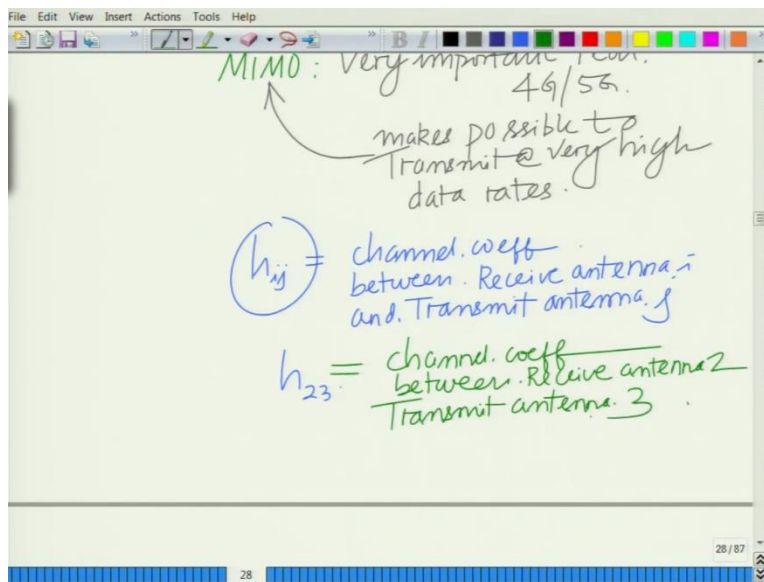 File Edit View Insert Actions Tools Help
MIMO : Very important
4G/5G.
makes possible to
Transmit @ very high
data rates.
hij = channel. coeff
between. Receive antenna. i
and. Transmit antenna. j
h23. = channel. coeff
between. Receive antenna 2
Transmit antenna. 3
28/87
28